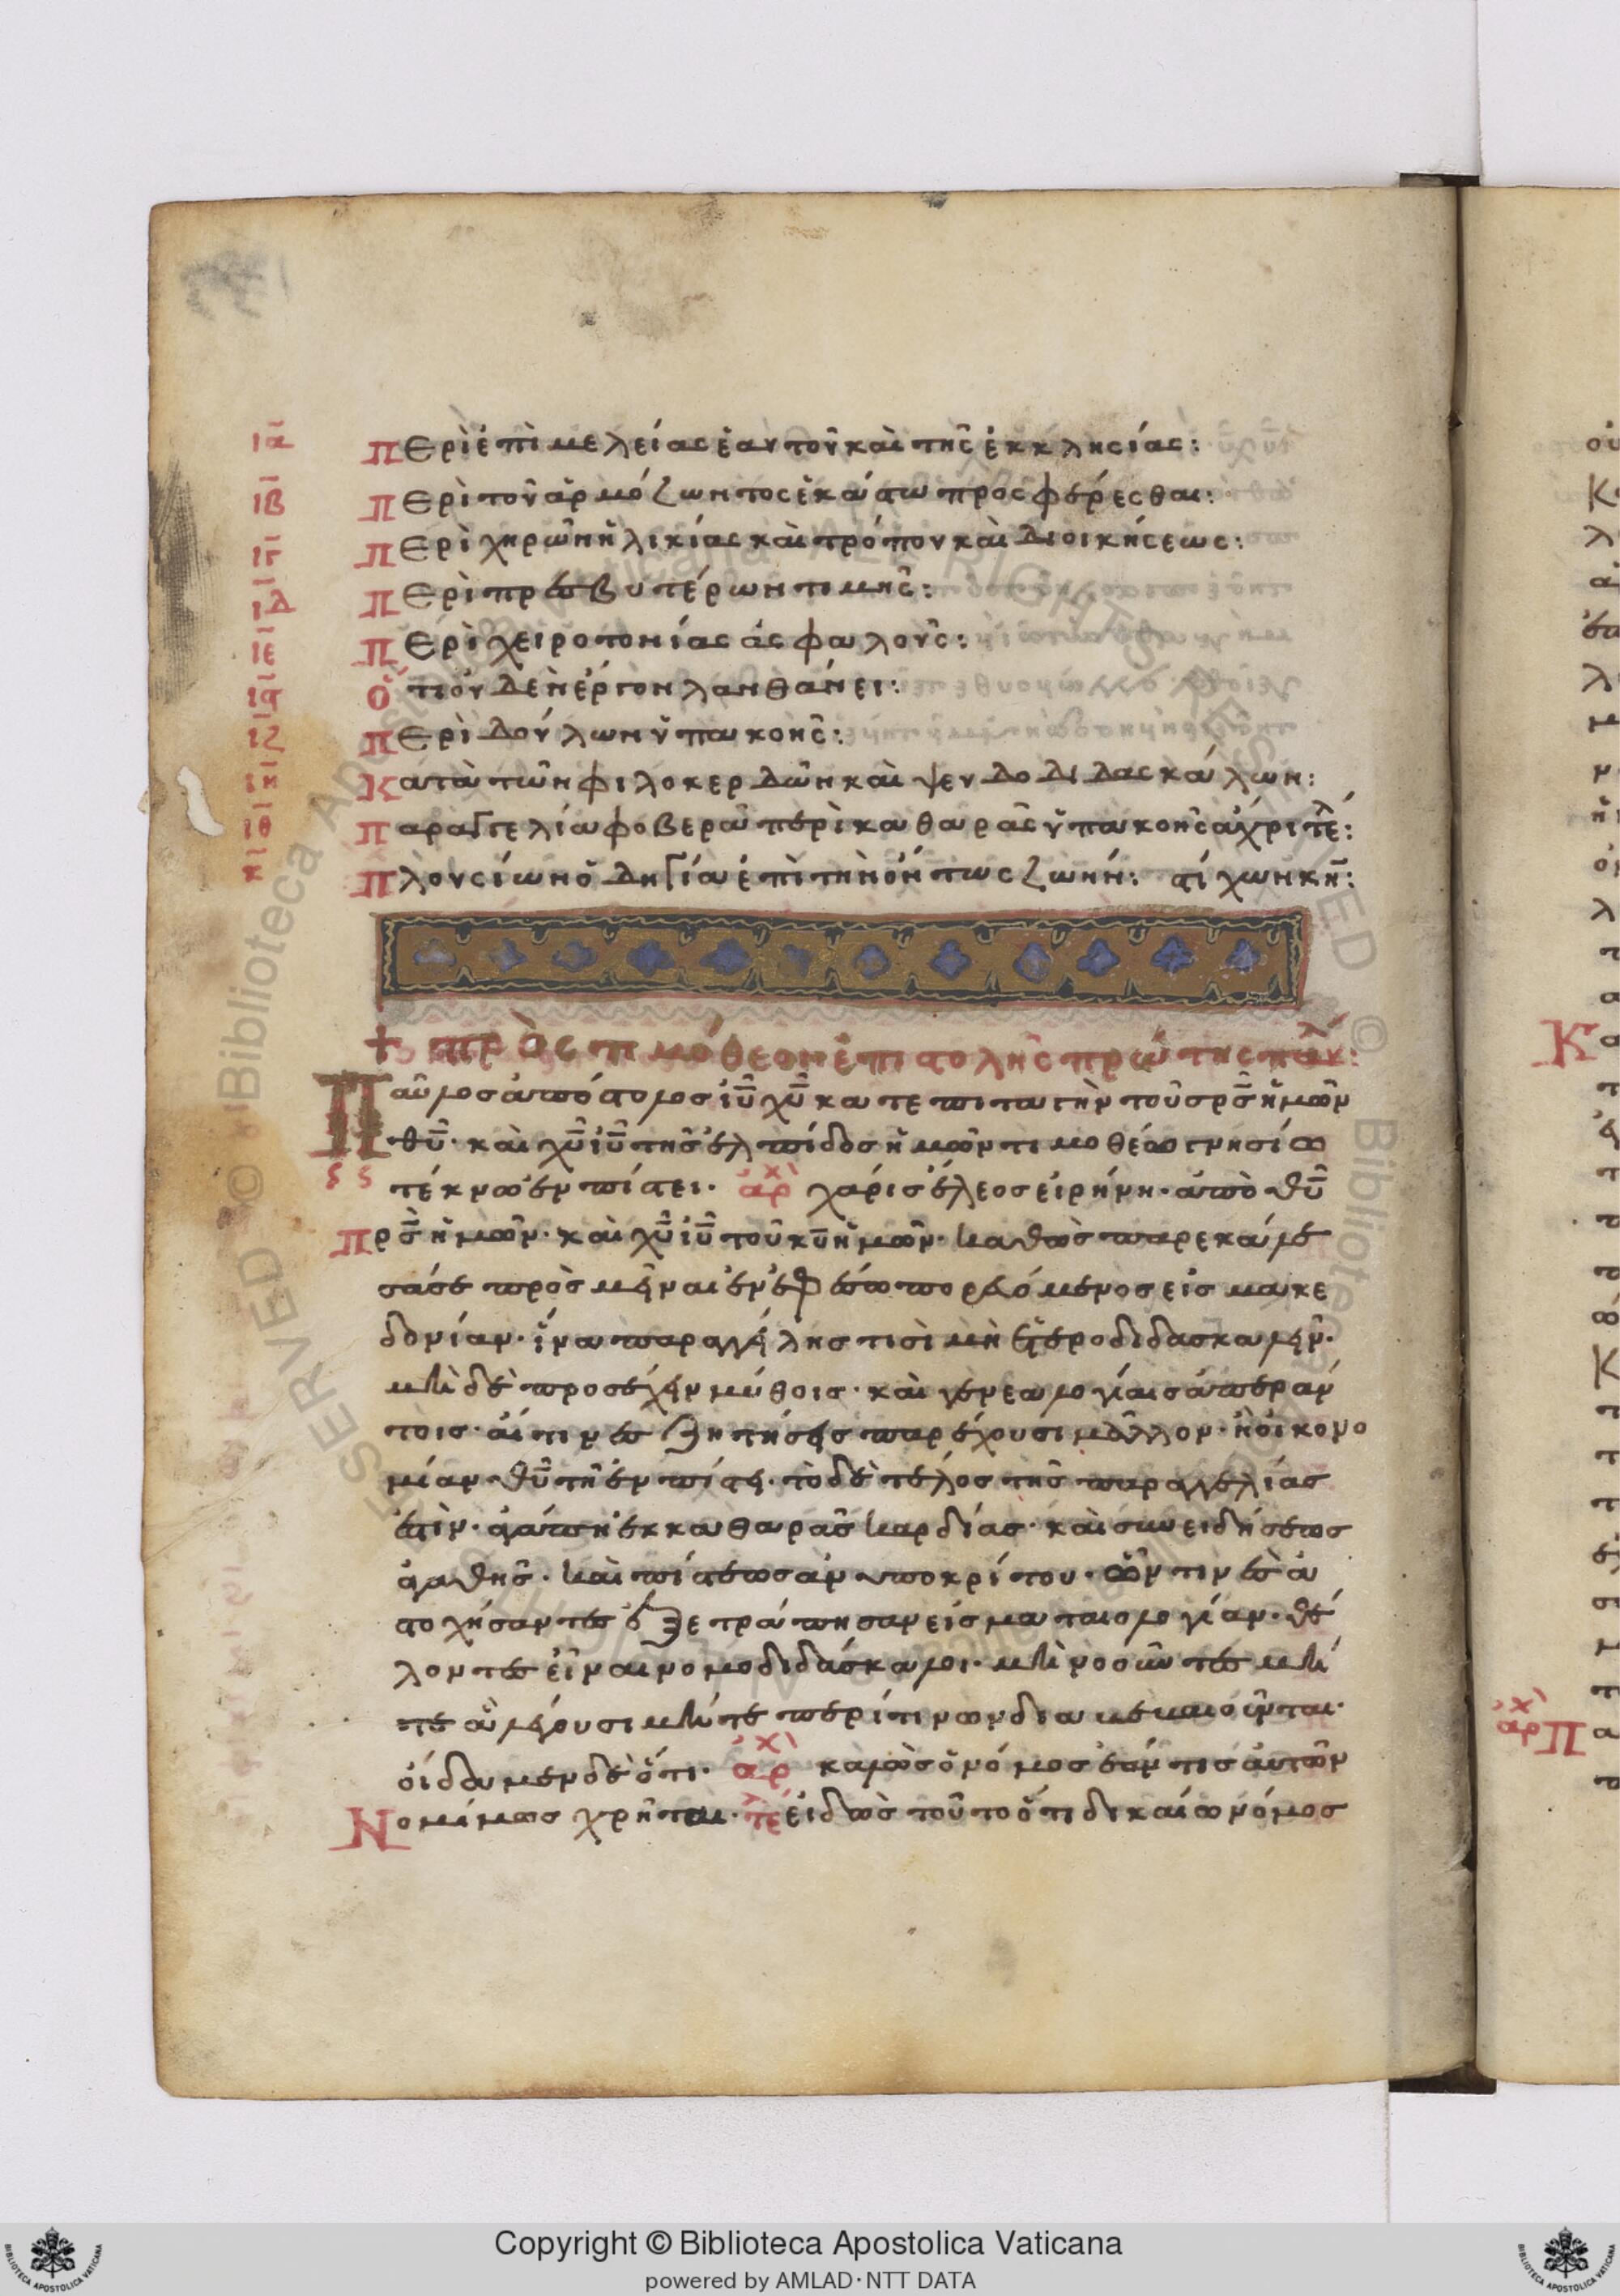 ια Περὶ ἐπὶμελείας ἑαυτοῦ καὶ τῆς ἐκκλησίας:
ιβ Περὶ τοῦ ἁρμόζωντος ἑκάστω προσφέρεσθαι:
ιγ Περὶ χηρῶν ἡλικίας καὶ τρόπου καὶ διοικήσεως:
ιδ Περὶ πρεσβυτέρων τιμῆς:
ιε Περὶ χειροτονίας ἀσφαλοῦς:
ις Ὅτι οὐδὲν ἔργον λανθάνει:
ιζ Περὶ δούλων ὑπακοῆς:
ιη Κατὰ τῶν φιλοκερδῶν καὶ ψευδοδιδασκάλων:
ιθ Παραγγελία φοβερὰ περὶ καθαρᾶς ὑπακοῆς ἄχρι τέλ:
κ Πλουσίων ὁδηγία ἐπὶ τὴν ὄντως ζωήν: στίχων κη:
+ πρὸς τιμόθεον ἐπιστολῆς πρώτης παύλ:
Παῦλος ἀπόστολος ιυ χυ κατ επιταγὴν του σρς ἡμῶν
θυ· καὶ χυ ιυ τῆς ἐλπίδος ἡμῶν τιμοθέω γνησίω
τέκνω ἐν πίστει· ἀρχ χάρις ἔλεος εἰρήνη· ἀπὸ θυ
Πρς ἡμῶν· καὶ χυ ιυ τοῦ κυ ἡμῶν· καθὼς παρεκάλε
σάσε προσμεῖναι ἐν ἐφέσω πορευόμενος εἰς μακε
δονίαν· ἵνα παραγγείλης τισὶ μὴ ἑτεροδιδασκαλεῖν·
μὴ δὲ προσέχειν μύθοις· καὶ γενεαλογίαις ἀπεράν
τοις· αἵτινες ζητήσεις παρέχουσι μᾶλλον· ἢ οἰκονο
μίαν θυ τὴ ἐν πίστει· τὸ δὲ τέλος τῆς παραγγελίας
ἐστὶν· ἀγάπη ἐκ καθαρᾶς καρδίας· καὶ συνειδήσεως
ἀγαθῆς· καὶ πίστεως ἀνυποκρίτου· ὧν τινὲς ἀ
στοχήσαντες ἐξετράπησαν εἰς ματαιολογίαν· θέ
λοντες εἶναι νομοδιδάσκαλοι· μὴ νοοῦντες μή
τε ἃ λέγουσι μήτε περί τινων διαβεβαιοῦνται·
οἴδαμεν δὲ ὅτι· ἀρχ καλὸς ὁ νόμος ἐάν τις αὐτῶν
Νομίμως χρῆται· τε εἰδὼς τοῦτο ὅτι δικαίω νόμος
Copyright © Biblioteca Apostolica Vaticana
powered by AMLAD·NTT DATA